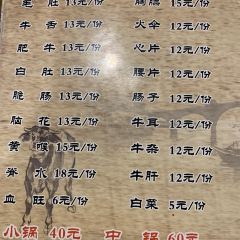 毛 肚 13元/份 胸脯 15元/份
牛 舌 13元/份 火伞 12元/份
肥 牛 13元/份 心片 12元/份
白 肚 13元/份 腰片 12元/份
脆 肠 13元/份 肠子 12元/份
脑 花 13元/份 牛耳 12元/份
黄 喉 15元/份 牛杂 12元/份
脊 水 18元/份 牛肝 12元/份
血 旺 6元/份 白菜 5元/份
小锅 40元 中 锅 60元